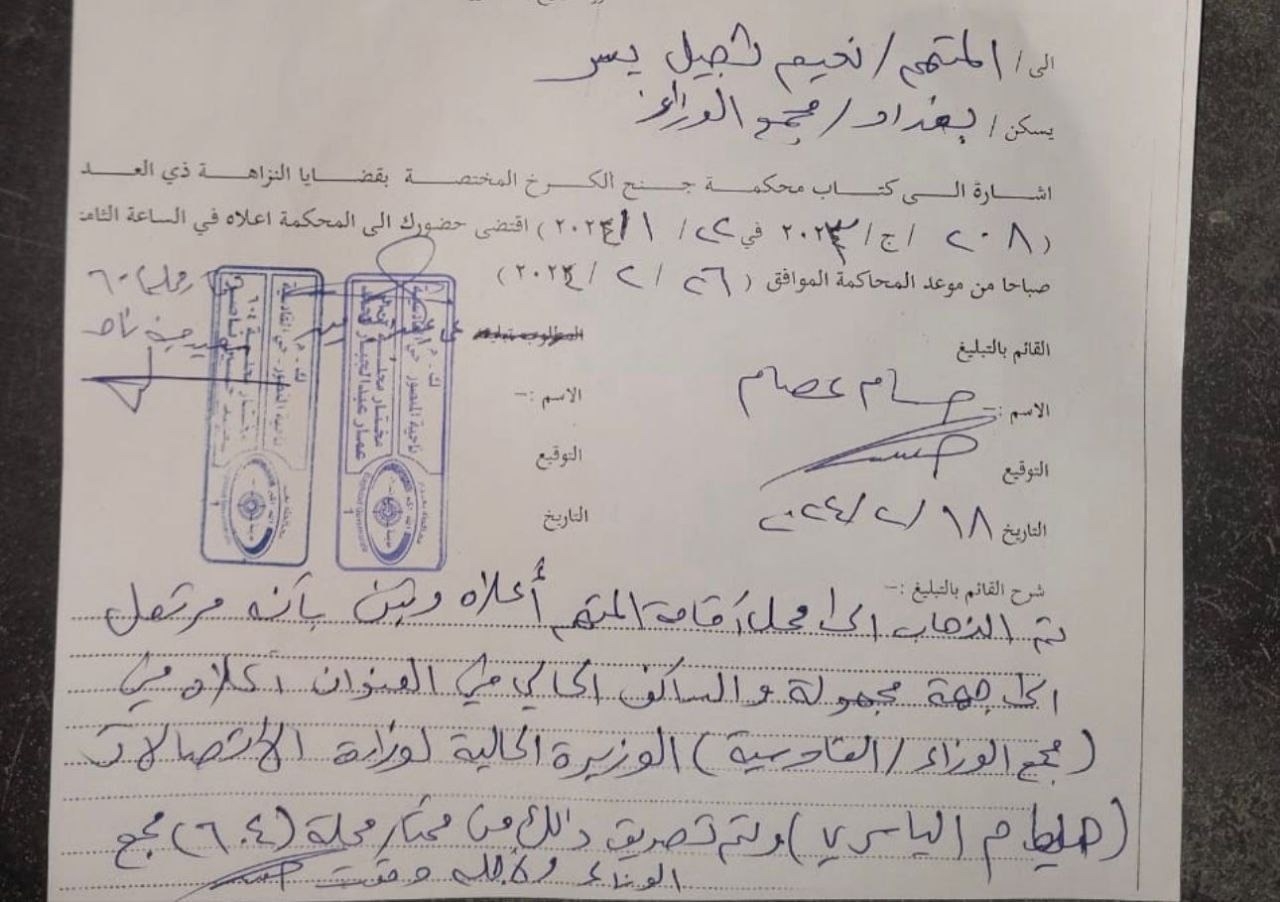 الى / المتهم / نعيم ثجيل يسر
يسكن / بغداد / مجمع الوزراء
اشارة الى كتاب محكمة جنح الكرخ المختصة بقضايا النزاهة ذي العد
( ٢٠٨ / ج / ٢٠٢٣ في ٢٢ / ١ / ٢٠٢٤ ) اقتضى حضورك الى المحكمة اعلاه في الساعة الثامنة
صباحا من موعد المحاكمة الموافق ( ٢٦ / ٢ / ٢٠٢٤ )
القائم بالتبليغ
المطلوب تبليغه
الاسم :- حسام عصام
الاسم :-
التوقيع
التوقيع
التاريخ ١٨ / ٢ / ٢٠٢٤
التاريخ
ك . م
ناحية المنصور - حي القادسية
مختار محلة
عمار عبدالجبار
ك . م
ناحية المنصور - حي القادسية
مختار محلة ٦٠٤
شرح القائم بالتبليغ :-
تم الذهاب الى محل أقامة المتهم أعلاه وتبين بأنه مرتحل
الى جهة مجهولة والساكن الحالي في العنوان اعلاه في
( مجمع الوزراء / القادسية ) الوزيرة الحالية لوزارة الأتصالات
( هيام الياسري ) وتم تصديق ذالك من مختار محلة ( ٦٠٤ ) مجمع
الوزراء ولأجله وقعت